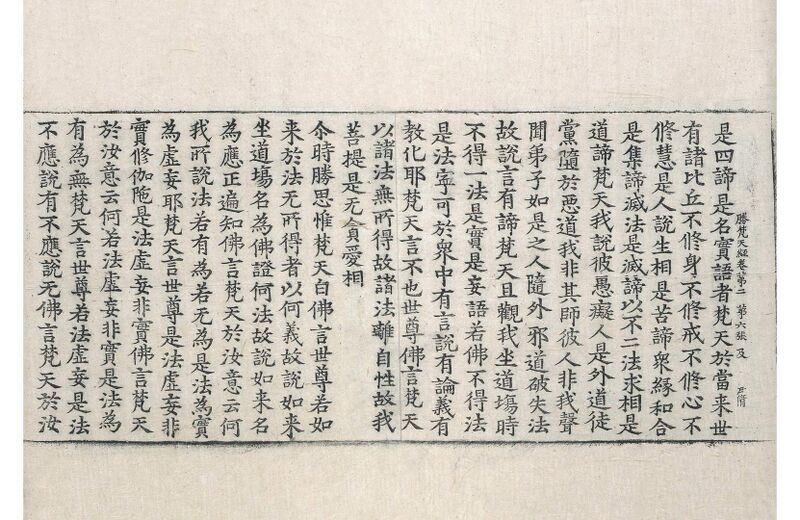 勝梵天經卷第二　第六張　及
是四諦是名實語者梵天於當来世
有諸比丘不修身不修戒不修心不
修慧是人說生相是苦諦衆縁和合
是集諦滅法是滅諦以不二法求相是
道諦梵天我說彼愚癡人是外道徒
黨隨於惡道我非其師彼人非我聲
聞弟子如是之人隨外邪道破失法
故說言有諦梵天且觀我坐道塲時
不得一法是實是妄語若佛不得法
是法寧可於衆中有言說有論義有
教化耶梵天言不也世尊佛言梵天
以諸法無所得故諸法離自性故我
菩提是无貪愛相
尒時勝思惟梵天白佛言世尊若如
来於法无所得者以何義故說如来
坐道塲名為佛證何法故說如来名
為應正遍知佛言梵天於汝意云何
我所說法若有為若无為是法為實
為虛妄耶梵天言世尊是法虛妄非
實修伽陁是法虛妄非實佛言梵天
於汝意云何若法虛妄非實是法為
有為無梵天言世尊若法虛妄是法
不應說有不應說无佛言梵天於汝